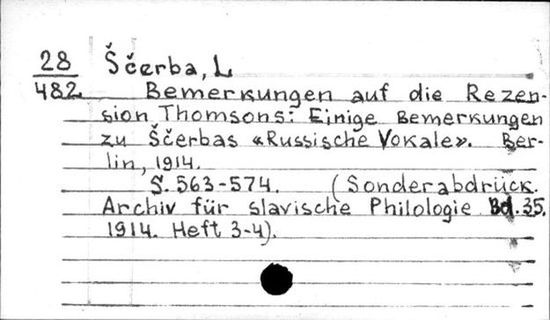 28 Ščerba, L
482 Bemerkungen auf die Rezen-
sion Thomsons: Einige Bemerkungen
zu Ščerbas «Russische Vokale». Ber-
lin, 1914.
S. 563-574. (Sonderabdrück.
Archiv für slavische Philologie Bd. 35.
1914. Heft 3-4).